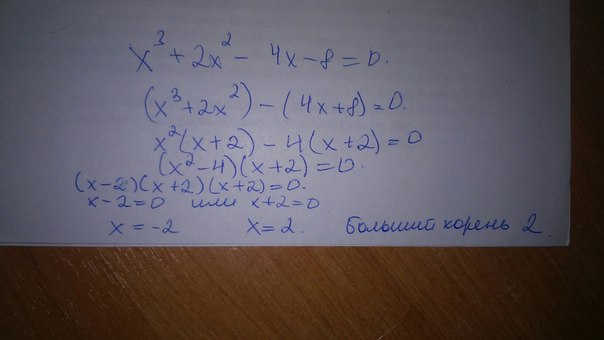 x³ + 2x² - 4x - 8 = 0.
(x³ + 2x²) - (4x + 8) = 0.
x²(x + 2) - 4(x + 2) = 0
(x² - 4)(x + 2) = 0.
(x - 2)(x + 2)(x + 2) = 0.
x - 2 = 0 или x + 2 = 0
x = -2 x = 2. Больший корень 2.